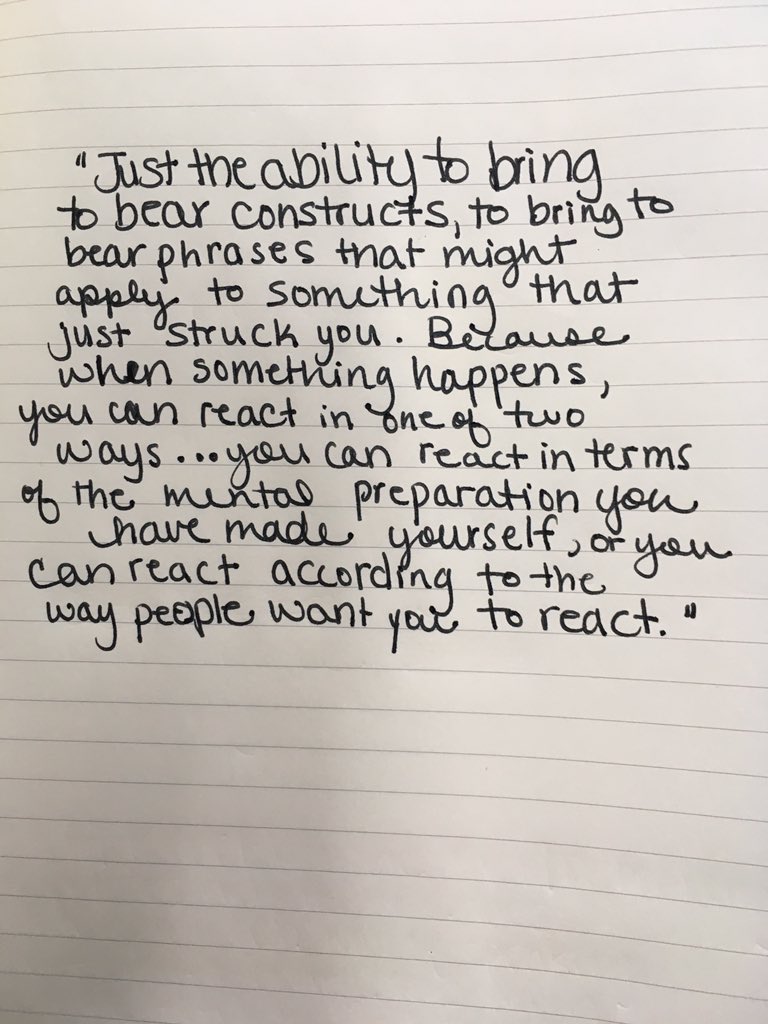 "Just the ability to bring
to bear constructs, to bring to
bear phrases that might
apply to something that
just struck you. Because
when something happens,
you can react in one of two
ways...you can react in terms
of the mental preparation you
have made yourself, or you
can react according to the
way people want you to react."